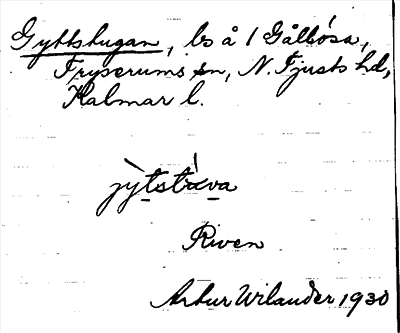 Gyttstugan, bs å 1 Gålbósa,
Fryserums sn, N. Tjusts hd,
Kalmar l.
jỳ̱tstɷ́va
Riven
Artur Wilander 1930